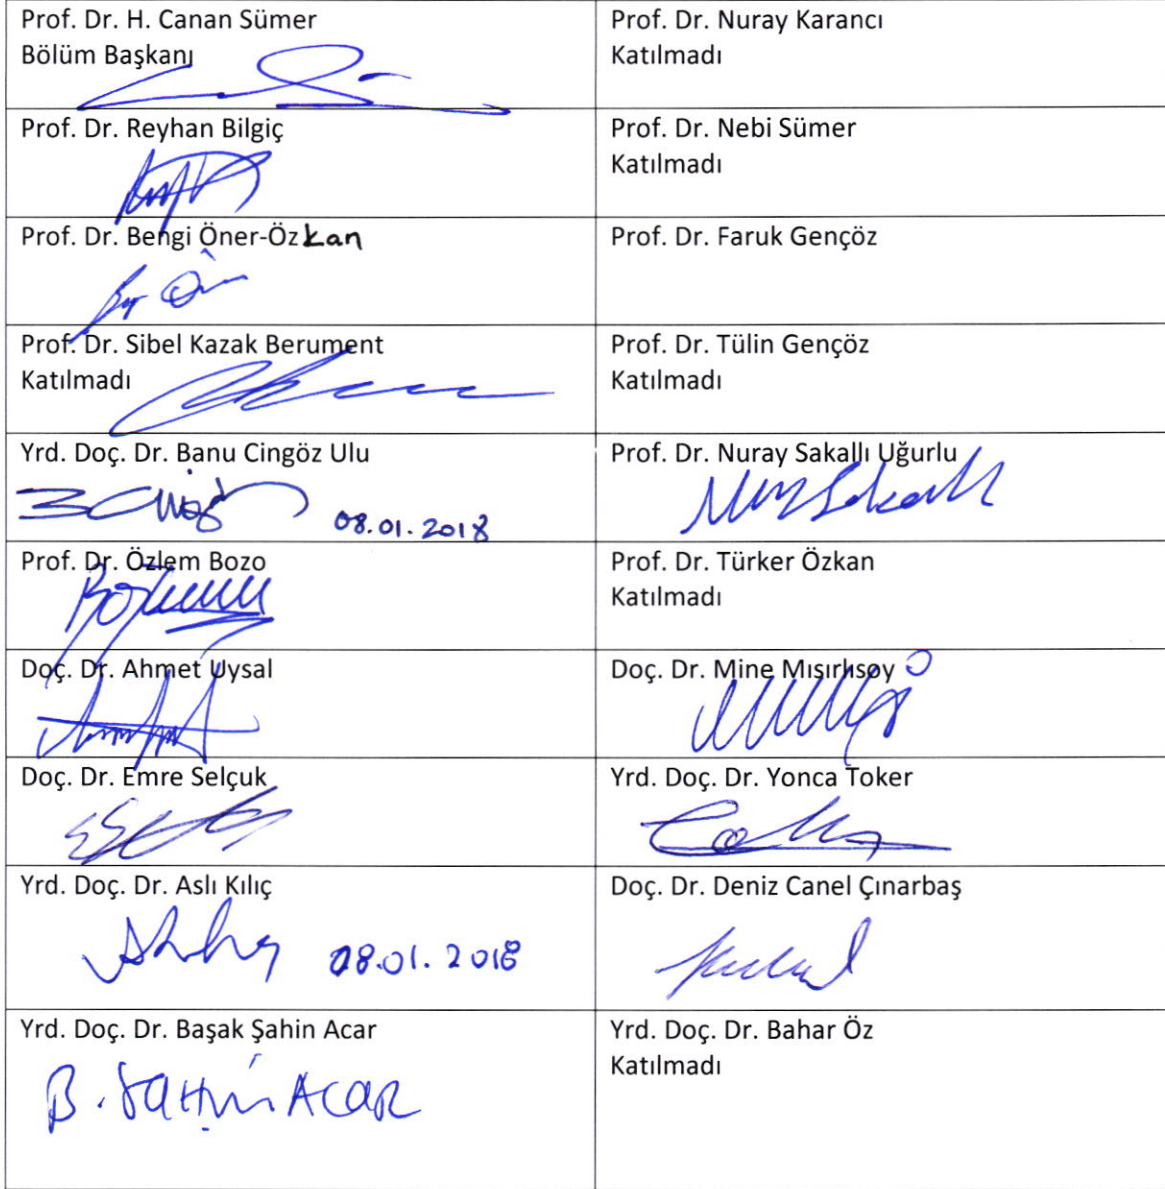 Prof. Dr. H. Canan Sümer
Bölüm Başkanı
Prof. Dr. Nuray Karancı
Katılmadı
Prof. Dr. Reyhan Bilgiç
Prof. Dr. Nebi Sümer
Katılmadı
Prof. Dr. Bengi Öner-Özkan
Prof. Dr. Faruk Gençöz
Prof. Dr. Sibel Kazak Berument
Katılmadı
Prof. Dr. Tülin Gençöz
Katılmadı
Yrd. Doç. Dr. Banu Cingöz Ulu
08.01.2018
Prof. Dr. Nuray Sakallı Uğurlu
Prof. Dr. Özlem Bozo
Prof. Dr. Türker Özkan
Katılmadı
Doç. Dr. Ahmet Uysal
Doç. Dr. Mine Mısırlısoy
Doç. Dr. Emre Selçuk
Yrd. Doç. Dr. Yonca Toker
Yrd. Doç. Dr. Aslı Kılıç
08.01.2018
Doç. Dr. Deniz Canel Çınarbaş
Yrd. Doç. Dr. Başak Şahin Acar
B. Şahin Acar
Yrd. Doç. Dr. Bahar Öz
Katılmadı